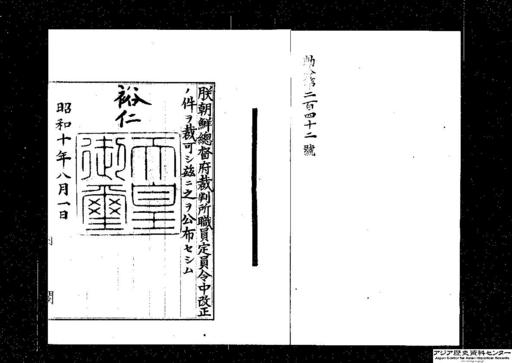 勅令第二百四十二號
朕朝鮮總督府裁判所職員定員令中改正
ノ件ヲ裁可シ茲ニ之ヲ公布セシム
裕仁
天皇御璽
昭和十年八月一日
内閣
アジア歴史資料センター
Japan Center for Asian Historical Records